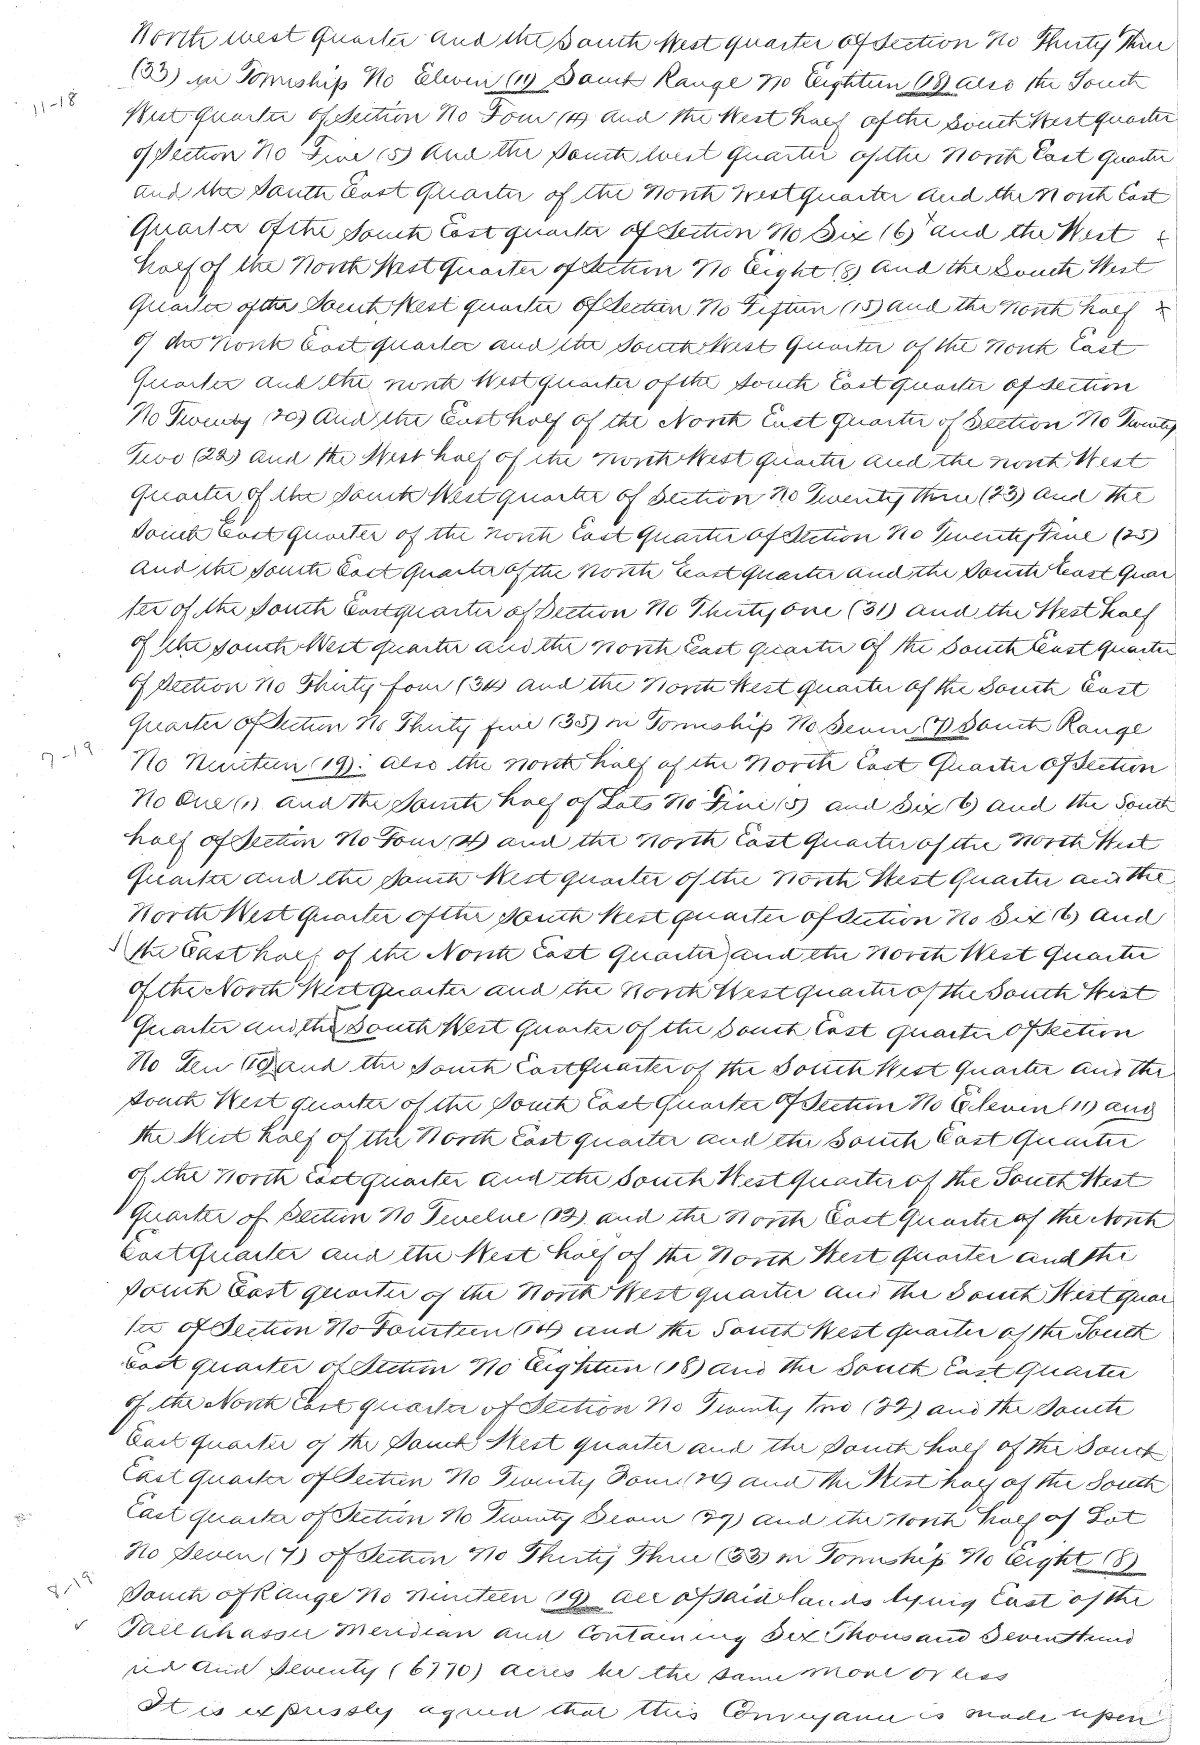 North west quarter and the South West quarter of Section No Thirty Three
(33) in Township No Eleven (11) South Range No Eighteen (18) also the South
11-18
West quarter of Section No Four (4) and the West half of the South West quarter
of Section No Five (5) and the South west quarter of the North East quarter
and the South East quarter of the North West quarter and the North East
Quarter of the South East quarter of Section No Six (6) and the West
half of the North West quarter of Section No Eight (8) and the South West
Quarter of the South West quarter of Section No Fifteen (15) and the North half
of the North East quarter and the South West Quarter of the North East
Quarter and the north West quarter of the South East quarter of Section
No Twenty (20) and the East half of the North East quarter of Section No Twenty
Two (22) and the West half of the North West quarter and the north West
Quarter of the South West quarter of Section No Twenty three (23) and the
South East quarter of the North East quarter of Section No Twenty Five (25)
and the South East quarter of the North East quarter and the South East Quar
ter of the South East quarter of Section No Thirty one (31) and the West half
of the South West quarter and the North East quarter of the South East quarter
of Section No Thirty four (34) and the North West quarter of the South East
quarter of Section No Thirty five (35) in Township No Seven (7) South Range
7-19
No Nineteen (19). also the north half of the North East Quarter of Section
No One (1) and the South half of Lots No Five (5) and Six (6) and the South
half of Section No Four (4) and the North East Quarter of the North West
Quarter and the South West quarter of the North West Quarter and the
North West quarter of the South West quarter of Section No Six (6) and
(the East half of the North East Quarter) and the North West Quarter
of the North West quarter and the North West quarter of the South West
Quarter and the [South West quarter of the South East quarter of Section
No Ten (10)] and the South East Quarter of the South West quarter and the
South West quarter of the South East Quarter of Section No Eleven (11) and
the West half of the North East quarter and the South East Quarter
of the North East quarter and the South West Quarter of the South West
Quarter of Section No Twelve (12) and the North East Quarter of the North
East Quarter and the West half of the North West quarter and the
South East quarter of the North West quarter and the South West quar
ter of Section No Fourteen (14) and the South West quarter of the South
East quarter of Section No Eighteen (18) and the South East Quarter
of the North East quarter of Section No Twenty two (22) and the South
East quarter of the South West quarter and the South half of the South
East quarter of Section No Twenty Four (24) and the West half of the South
East quarter of Section No Twenty Seven (27) and the North half of Lot
No Seven (7) of Section No Thirty Three (33) in Township No Eight (8)
8-19
South of Range No Nineteen (19) all of said lands lying East of the
Tallahassee Meridian and Containing Six Thousand Seven Hund
red and Seventy (6770) acres be the same more or less
It is expressly agreed that this Conveyance is made upon